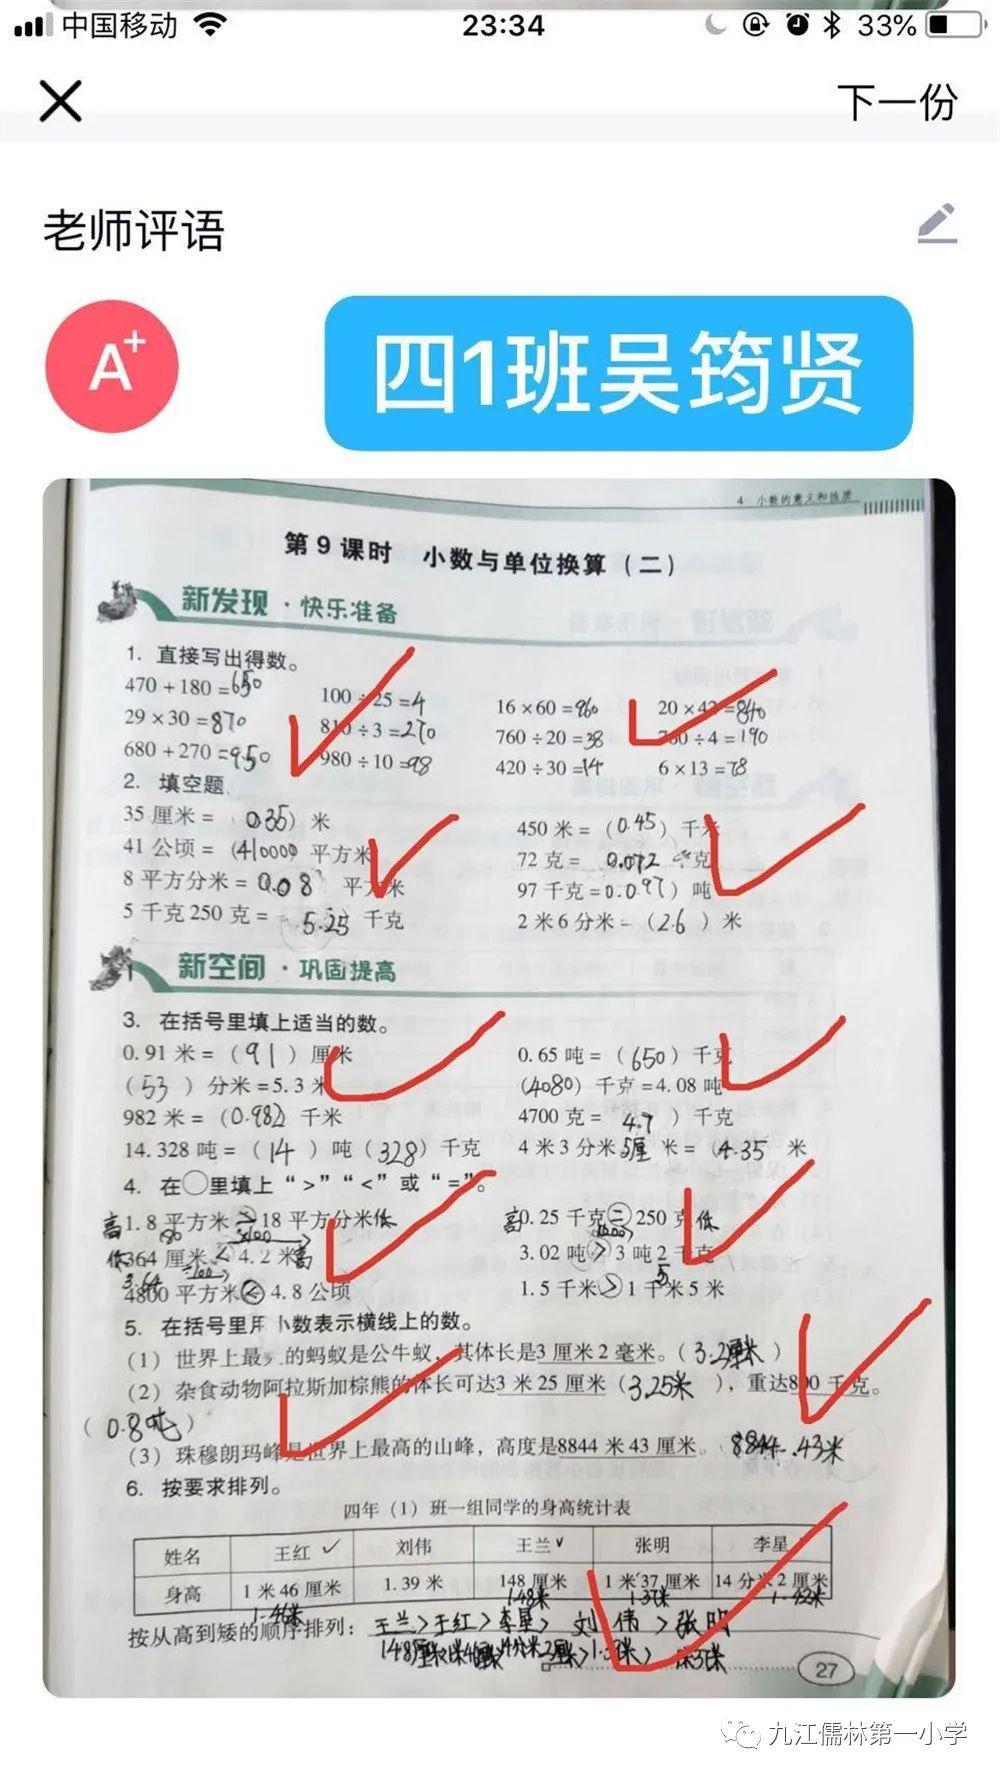 中国移动 23:34 33%
下一份
老师评语
A+ 四1班吴筠贤
4 小数的意义和性质
第9课时 小数与单位换算（二）
新发现·快乐准备
1. 直接写出得数。
470+180=650 100÷25=4 16×60=960 20×42=840
29×30=870 810÷3=270 760÷20=38 760÷4=190
680+270=950 980÷10=98 420÷30=14 6×13=78
2. 填空题
35厘米=（0.35）米 450米=（0.45）千米
41公顷=（410000 平方米 72克= 0.072 千克
8平方分米=0.08 平方米 97千克=0.097）吨
5千克250克= 5.25 千克 2米6分米=（2.6）米
新空间·巩固提高
3. 在括号里填上适当的数。
0.91米=（91）厘米 0.65吨=（650）千克
（53）分米=5.3米 （4080）千克=4.08吨
982米=（0.982 千米 4700克= 4.7 ）千克
14.328吨=（14）吨（328）千克 4米3分米5厘米=（4.35 米
4. 在○里填上“>”“<”或“=”。
高1.8平方米>18平方分米低 高0.25千克=250克低
低364厘米<4.2米高 3.02吨>3吨2千克
3.64
4800平方米<4.8公顷 1.5千米>1千米5米
5. 在括号里用小数表示横线上的数。
（1）世界上最 的蚂蚁是公牛蚁，其体长是3厘米2毫米。（3.2厘米）
（2）杂食动物阿拉斯加棕熊的体长可达3米25厘米（3.25米），重达800千克。
（0.8吨）
（3）珠穆朗玛峰是世界上最高的山峰，高度是8844米43厘米。8844.43米
6. 按要求排列。
四年（1）班一组同学的身高统计表
姓名 王红 刘伟 王兰 张明 李星
身高 1米46厘米 1.39米 148厘米 1米37厘米 14分米2厘米
1.46米 1.48米 1.37米 1.42米
按从高到矮的顺序排列：王兰>王红>李星>刘伟>张明
27
九江儒林第一小学